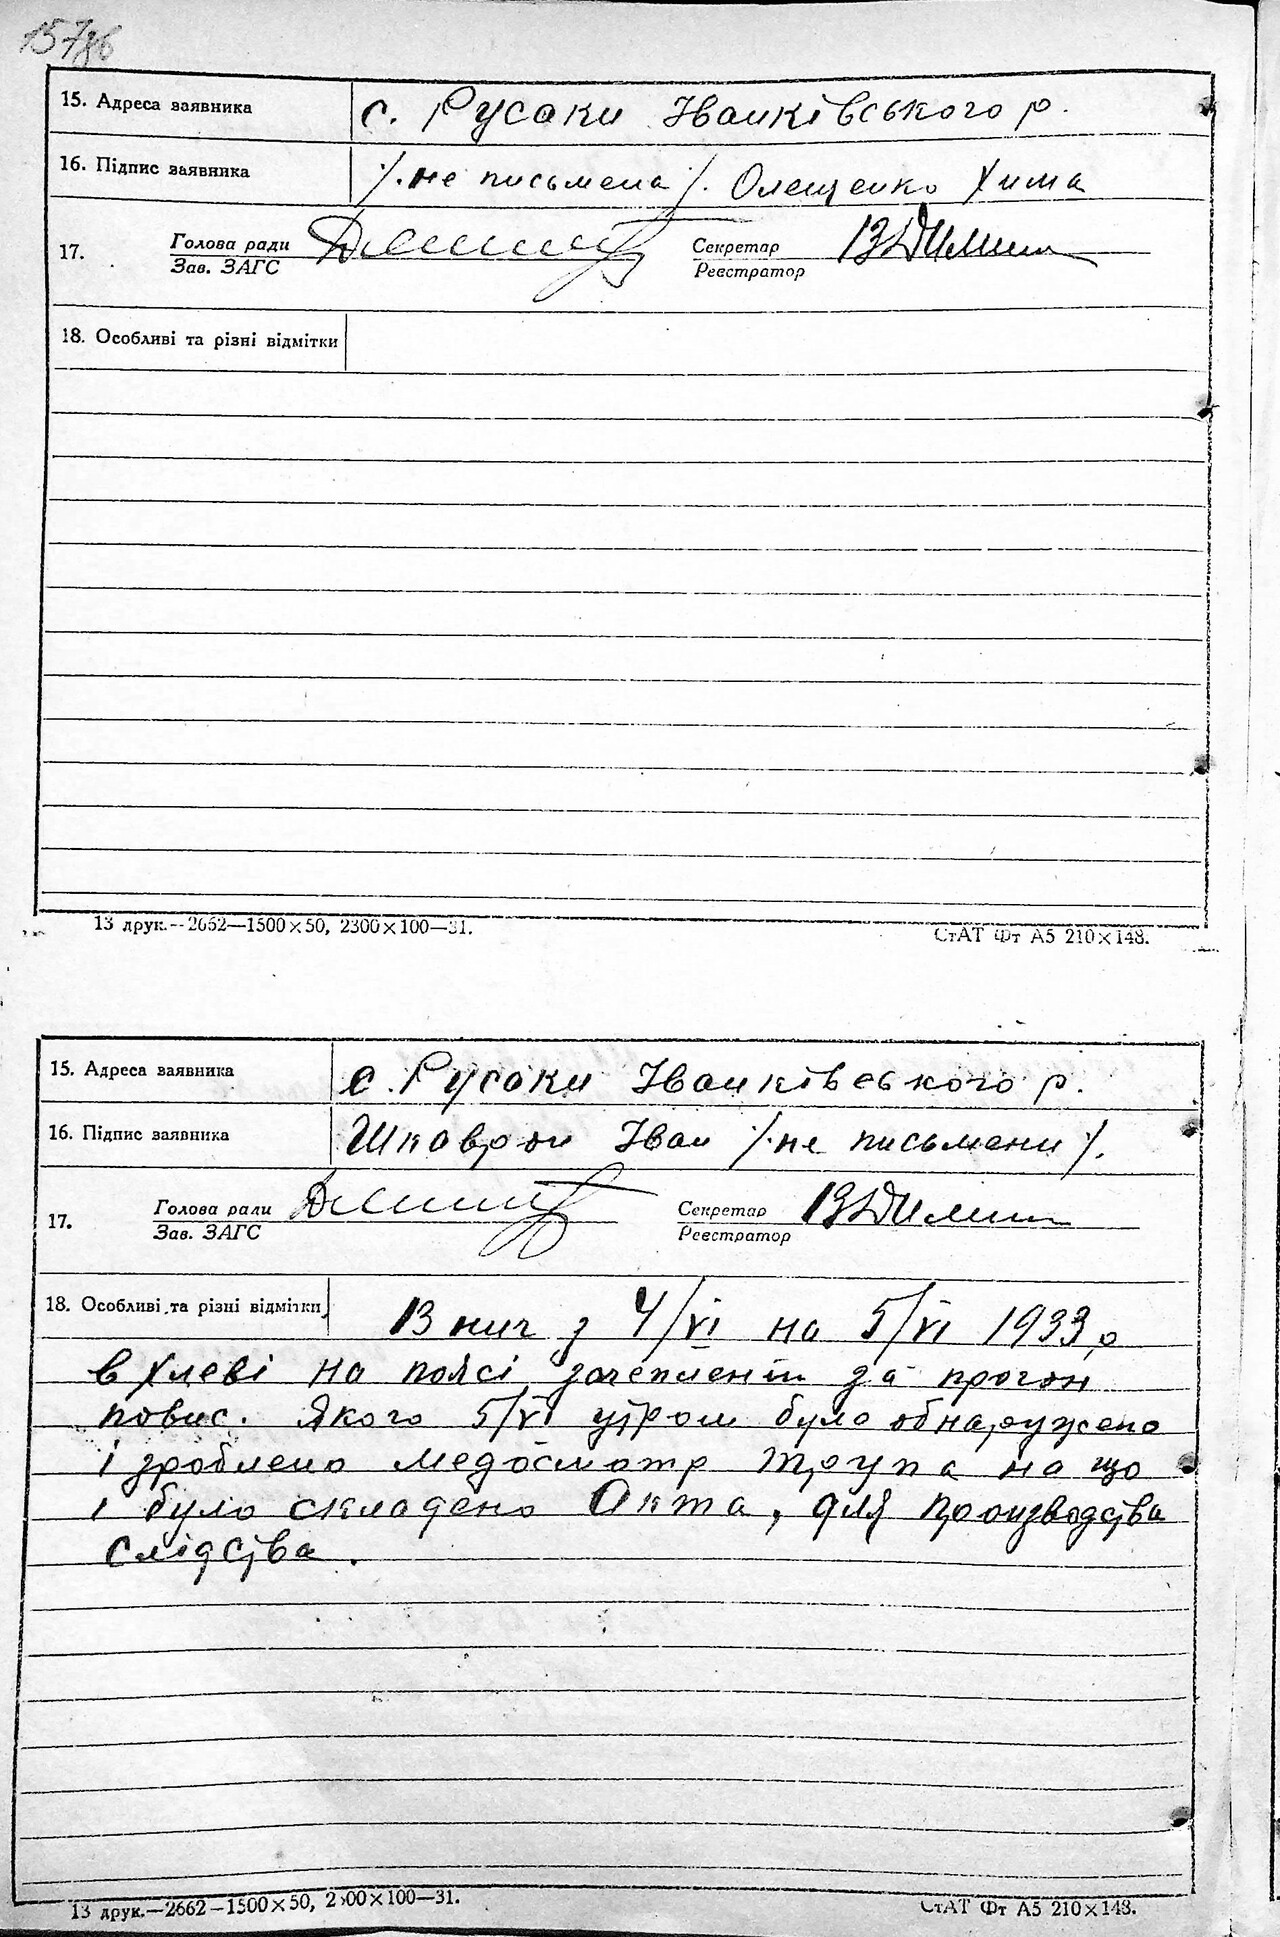 157зв
15. Адреса заявника с. Русаки Іванківського р.
16. Підпис заявника /. не письмена /. Олещенко Хима
17. Голова ради Секретар
Зав. ЗАГС Реєстратор
18. Особливі та різні відмітки
13 друк.—2662—1500×50, 2300×100—31. СтАТ Фт А5 210×148.
15. Адреса заявника с. Русаки Іванківського р.
16. Підпис заявника Шкаврон Іван /. не письмени /.
17. Голова ради Секретар
Зав. ЗАГС Реєстратор
18. Особливі та різні відмітки В нич з 4/VI на 5/VI 1933 р
в хлеві на поясі зачеплений за прогон
повис. Якого 5/VI утром було обнаружено
і зроблено медосмотр трупа на що
і було складено Акта, для производства
слідства.
13 друк.—2662—1500×50, 2300×100—31. СтАТ Фт А5 210×148.